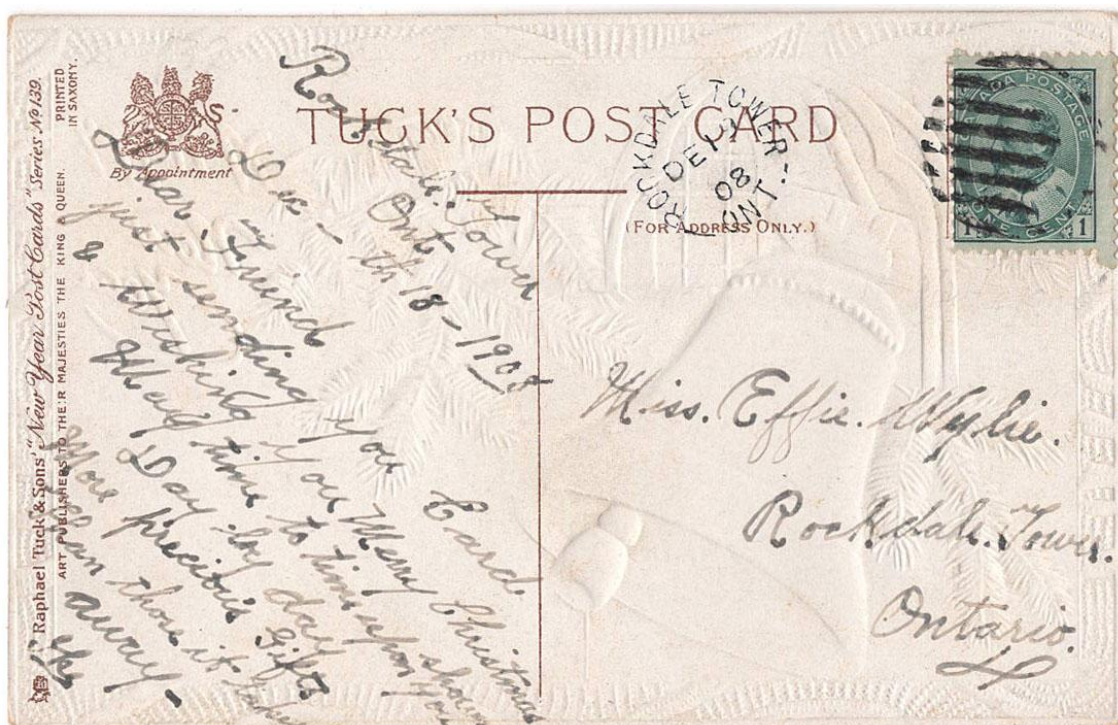 Raphael Tuck & Sons' "New Year Post Cards" Series No 139.
ART PUBLISHERS TO THEIR MAJESTIES THE KING & QUEEN.
PRINTED
IN SAXONY.
By Appointment
TUCK'S POST CARD
(FOR ADDRESS ONLY.)
ROCKDALE TOWER
DE
08
ONT.
CANADA POSTAGE
1 ONE CENT 1
Rockdale. Tower
Ont
Dec - th 18 - 1908
Dear Friend
just sending you Card
& Wishing you Merry Christmas
May time to time upon you shower
Day by day
More precious gifts
than those it takes
away -
Miss. Effie. Wylie.
Rockdale. Tower.
Ontario.